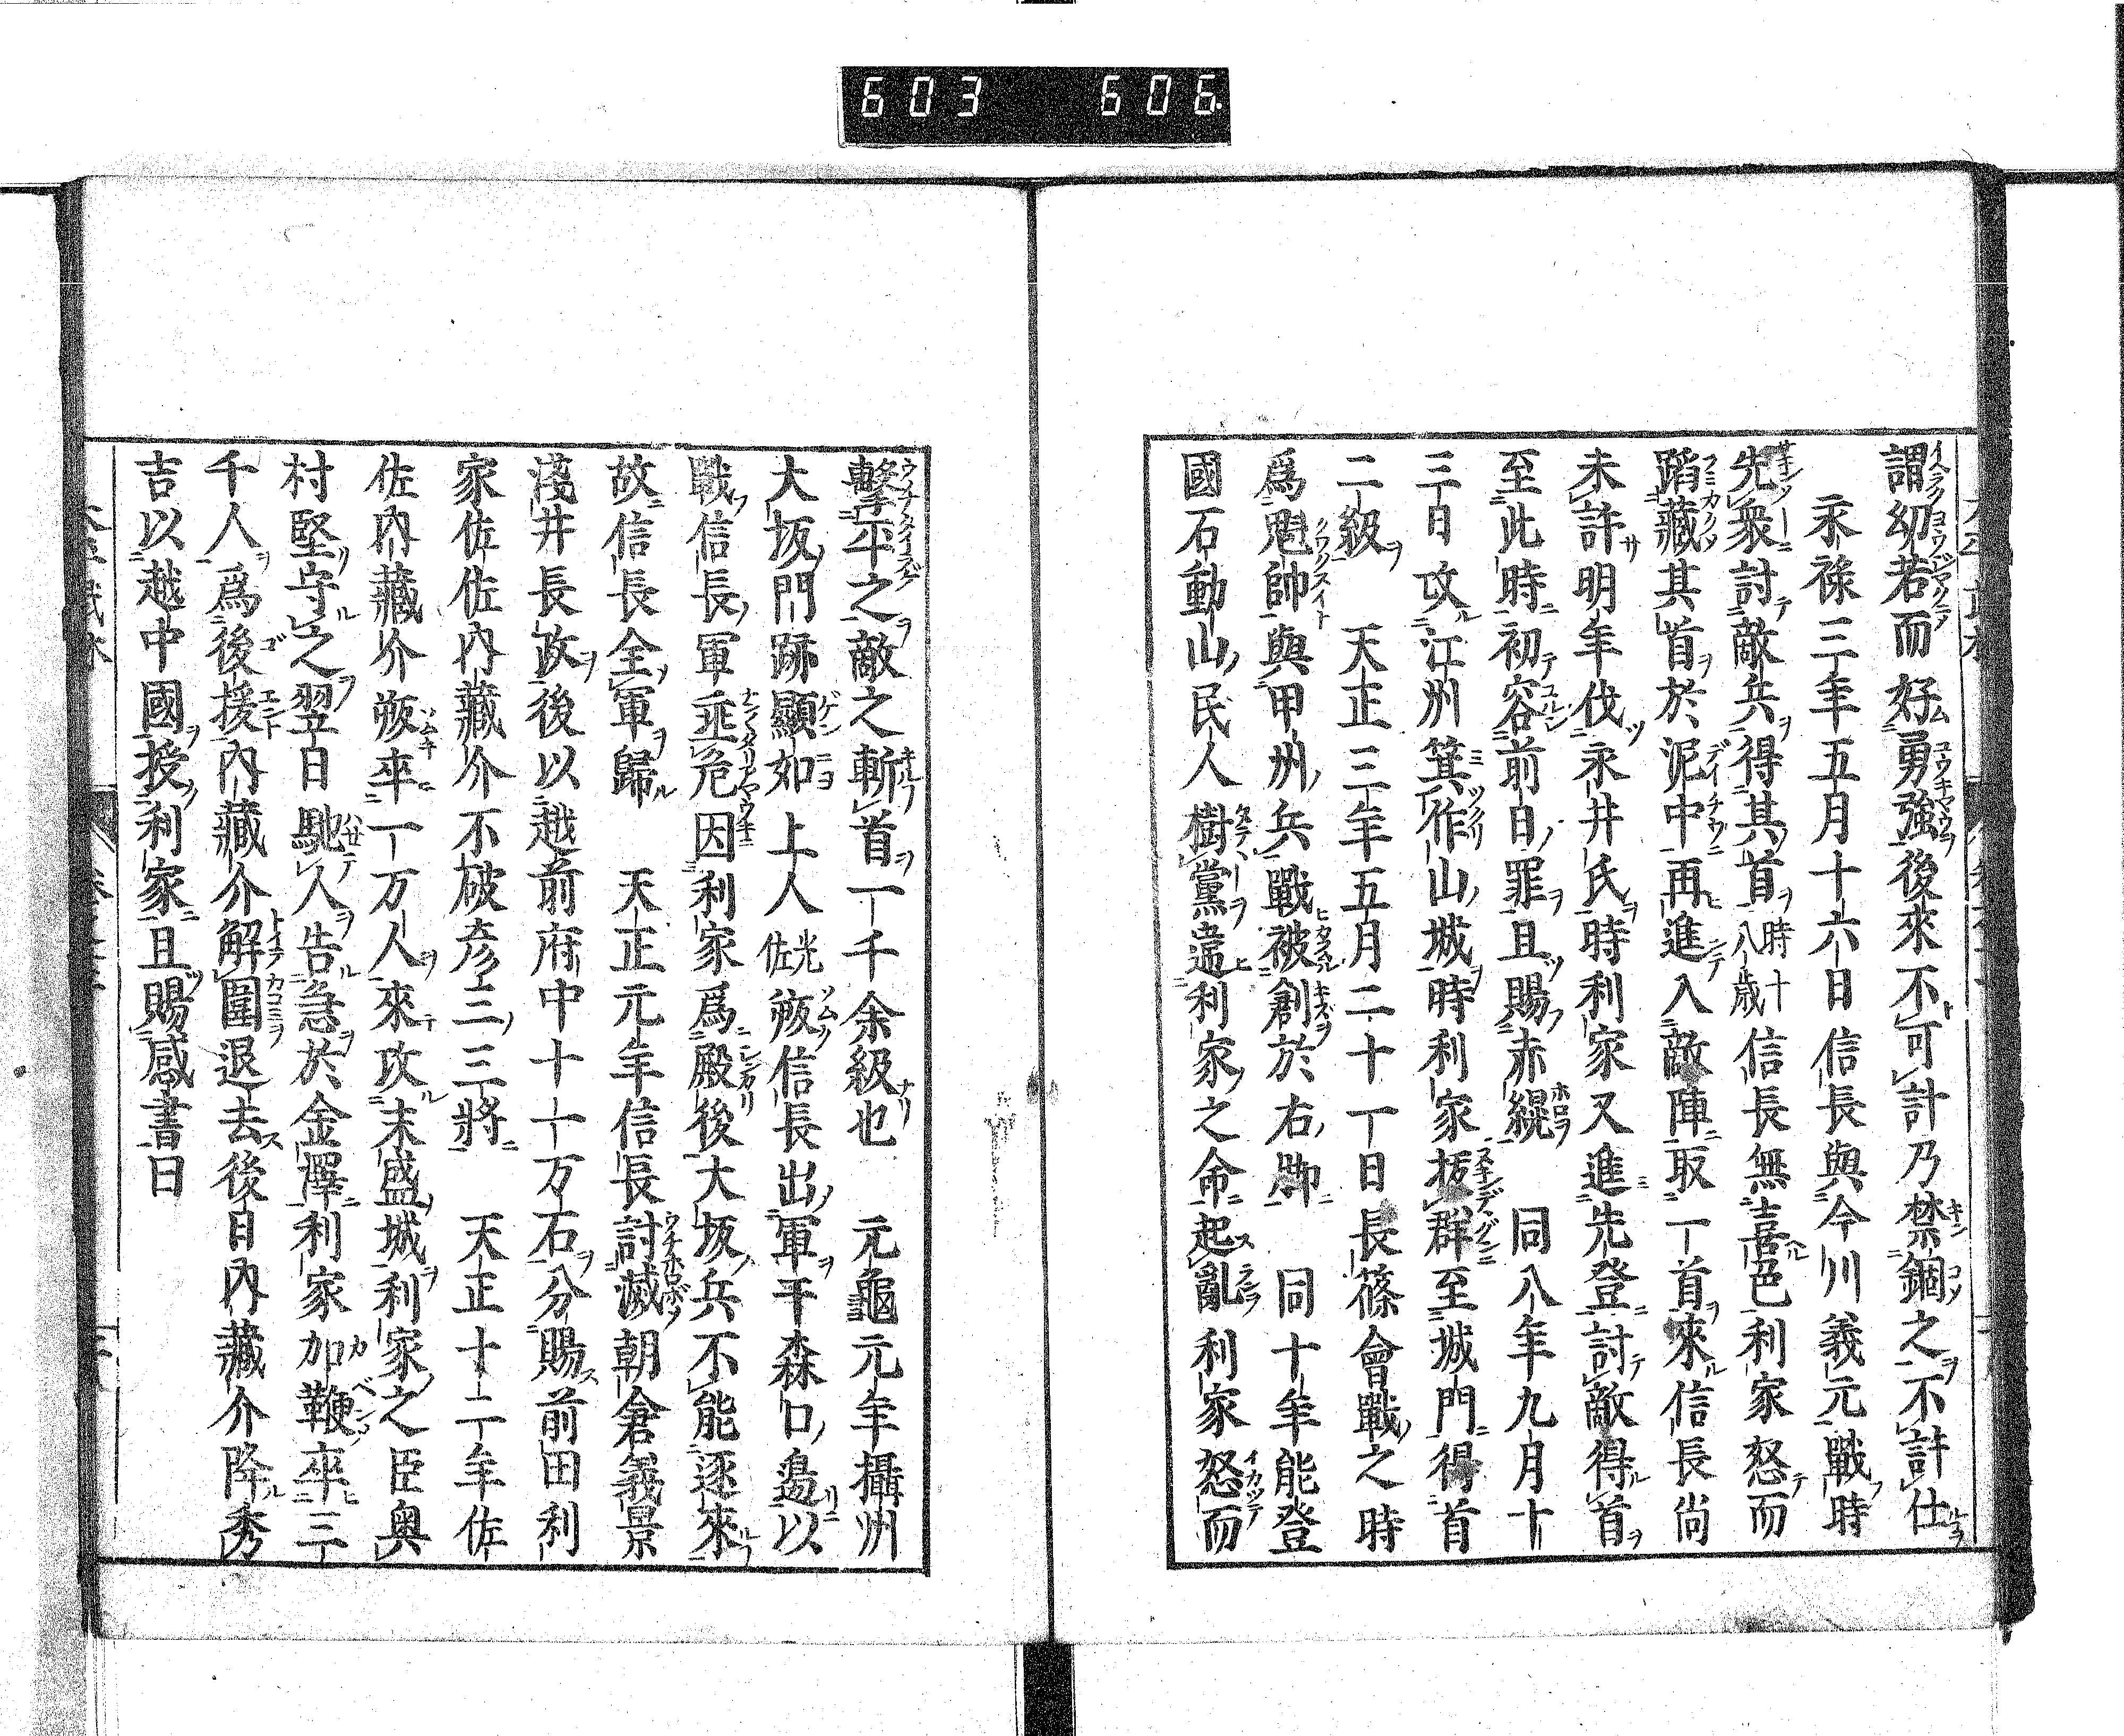 603 606
謂幼若而好勇強後來不可計乃禁錮之不許仕
永祿三年五月十六日信長與今川義元戰時
先衆討敵兵得其首時十八歲信長無喜色利家怒而
蹈藏其首於泥中再進入敵陣取一首來信長尚
未許明年伐永井氏時利家又進先登討敵得首
至此時初容前日罪且賜赤縨　同八年九月十
三日攻江州箕作山城時利家拔群至城門得首
二級　天正三年五月二十一日長篠會戰之時
爲魁帥與甲州兵戰被創於右脚　同十年能登
國石動山民人樹黨違利家之命起亂利家怒而
擊平之敵之斬首一千余級也　元龜元年攝州
大坂門跡顯如上人光佐叛信長出軍于森口邊以
戰信長軍垂危因利家爲殿後大坂兵不能逐來
故信長全軍歸　天正元年信長討滅朝倉義景
淺井長政後以越前府中十一万石分賜前田利
家佐佐內藏介不破彥三三將　天正十二年佐
佐內藏介叛率一万人來攻末盛城利家之臣奥
村堅守之翌日馳人告急於金澤利家加鞭率三
千人爲後援內藏介解圍退去後日內藏介降秀
吉以越中國授利家且賜感書曰